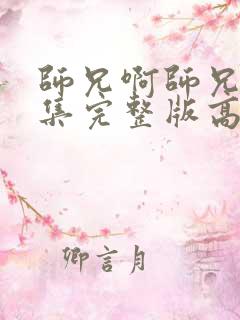 師兄啊師兄
集完整版高
卿言月